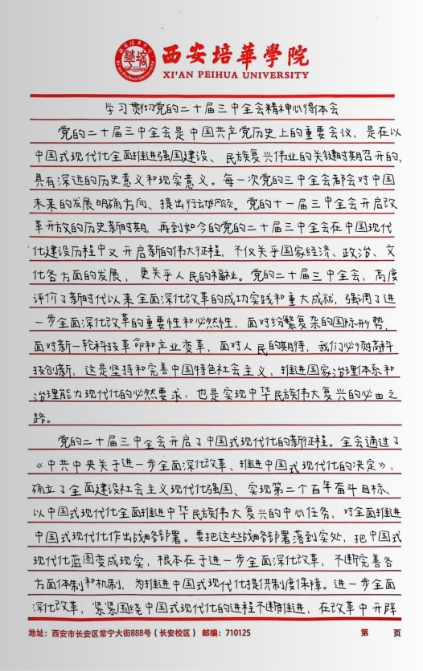 西安培華學院
XI'AN PEIHUA UNIVERSITY
学习贯彻党的二十届三中全会精神心得体会
党的二十届三中全会是中国共产党历史上的重要会议，是在以
中国式现代化全面推进强国建设、民族复兴伟业的关键时期召开的，
具有深远的历史意义和现实意义。每一次党的三中全会都会对中国
未来的发展明确方向、提出行动阶段。党的十一届三中全会开启改
革开放的历史新时期，再到如今的党的二十届三中全会在中国现代
化建设历程中又开启新的伟大征程，不仅关乎国家经济、政治、文
化各方面的发展，更关乎人民的福祉。党的二十届三中全会，高度
评价了新时代以来全面深化改革的成功实践和重大成就，强调了进
一步全面深化改革的重要性和必然性，面对纷繁复杂的国际形势，
面对新一轮科技革命和产业变革，面对人民的期待，我们必须高举科
技创新，这是坚持和完善中国特色社会主义，推进国家治理体系和
治理能力现代化的必然要求，也是实现中华民族伟大复兴的必由之
路。
党的二十届三中全会开启了中国式现代化的新征程。全会通过了
《中共中央关于进一步全面深化改革、推进中国式现代化的决定》，
确立了全面建设社会主义现代化强国、实现第二个百年奋斗目标、
以中国式现代化全面推进中华民族伟大复兴的中心任务，对全面推进
中国式现代化作出战略部署。要把这些战略部署落到实处，把中国式
现代化蓝图变成现实，根本在于进一步全面深化改革，不断完善各
方面体制和机制，为推进中国式现代化提供制度保障。进一步全面
深化改革，紧紧围绕中国式现代化的进程不断推进，在改革中开辟
地址：西安市长安区常宁大街888号（长安校区） 邮编：710125 第 页